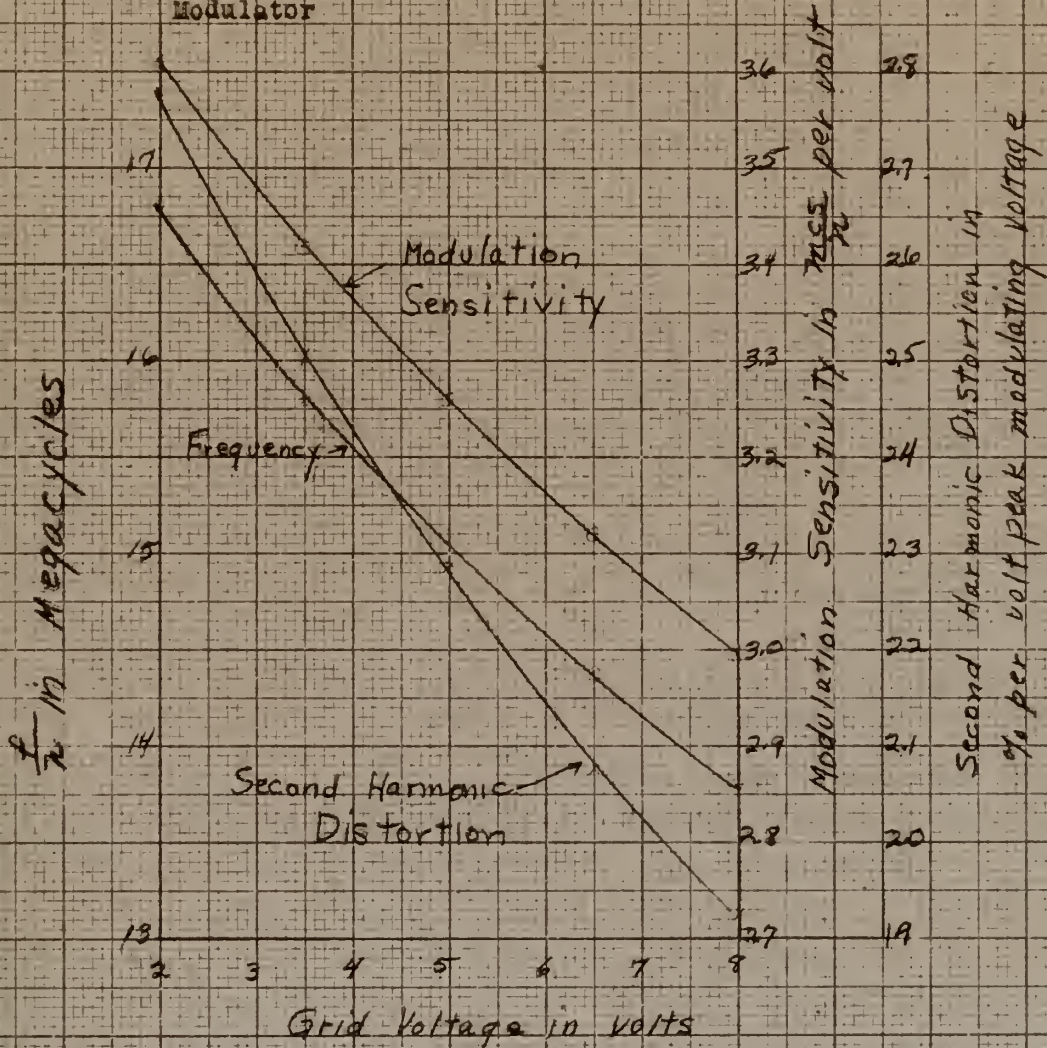 Modulator
Modulation
Sensitivity
Frequency
Second Harmonic
Distortion
17
16
15
14
13
f/n in Megacycles
2 3 4 5 6 7 8
Grid Voltage in volts
3.6
3.5
3.4
3.3
3.2
3.1
3.0
2.9
2.8
2.7
Modulation Sensitivity in mcs/n per volt
2.8
2.7
2.6
2.5
2.4
2.3
2.2
2.1
2.0
1.9
Second Harmonic Distortion in
% per volt peak modulating voltage